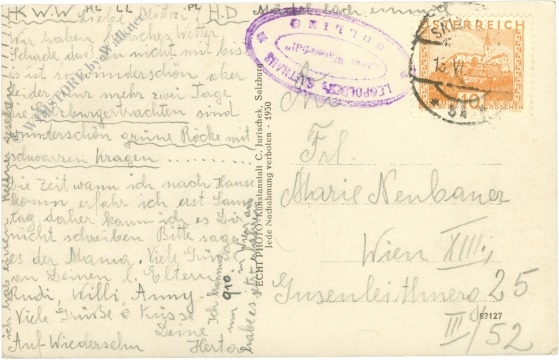 K.W.W. HE LL PL H.D
Liebe Mutter!
Wir haben herrliches Wetter
Schade das Du nicht mit bist
es ist so wunderschön aber
leider nur mehr zwei Tage
Salzburgertrachten sind
wunderschön grüne Röcke mit
schwarzen Kragen.........
Die Zeit wann ich nach Hause
komm erfahr ich erst Sams
tag daher kann ich es Dir
nicht schreiben Bitte sage
es der Mama. Viele Grüße
von Deinen l. Eltern
Rudi, Willi, Anny.
Viele Grüße & Küsse
Deine
Auf Wiedersehn Herta
Ich komme
um 910 in Wien an
ECHT PHOTO · Kunstanstalt C. Jurischek, Salzburg
Jede Nachahmung verboten - 1930
LEOPOLDSK. GUTHAUS
GOLLING
ÖSTERREICH
10
GROSCHEN
An
Frl.
Marie Neubauer
Wien XIII.,
Gusenleithnerg 25
III/52
82127